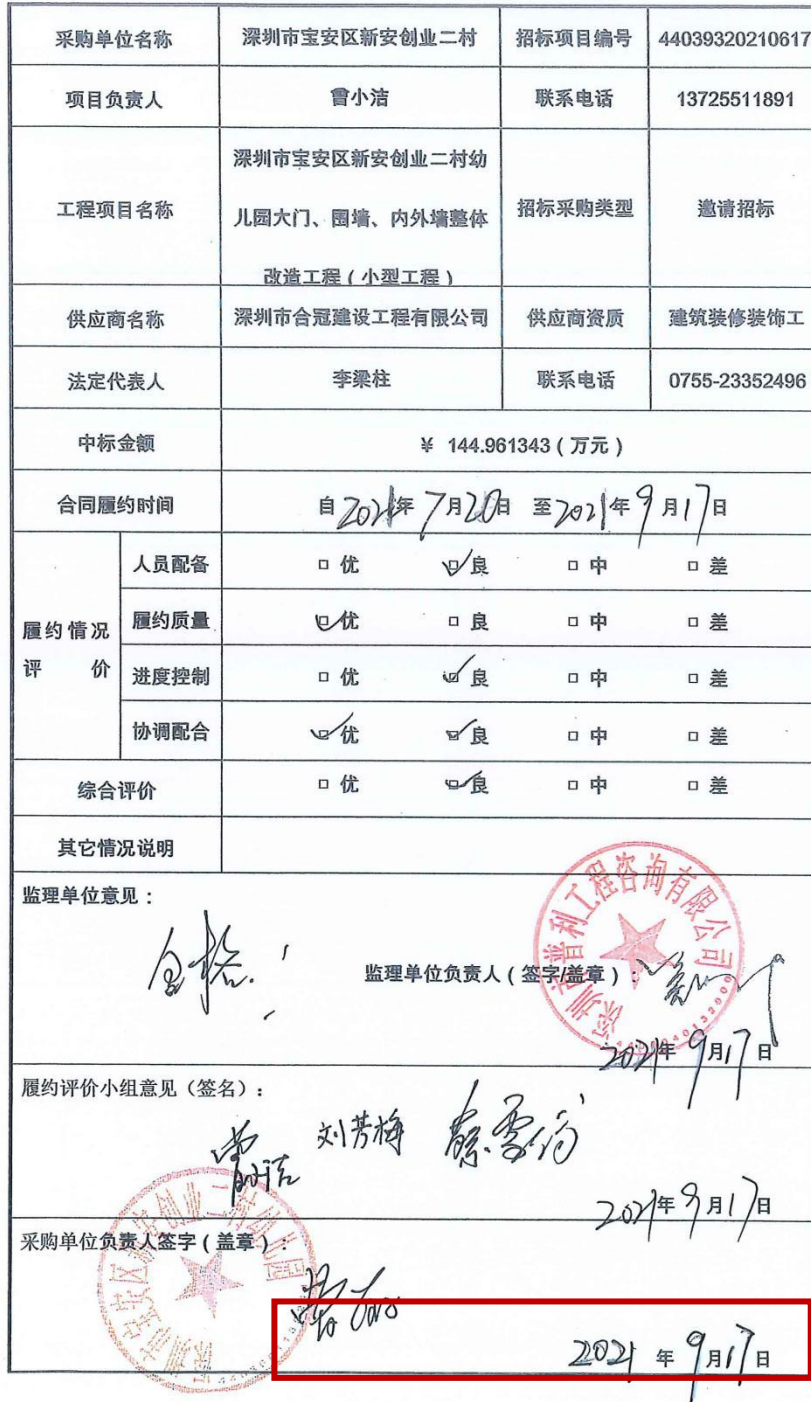 采购单位名称 深圳市宝安区新安创业二村 招标项目编号 44039320210617
项目负责人 曾小洁 联系电话 13725511891
工程项目名称 深圳市宝安区新安创业二村幼
儿园大门、围墙、内外墙整体
改造工程（小型工程） 招标采购类型 邀请招标
供应商名称 深圳市合冠建设工程有限公司 供应商资质 建筑装修装饰工
法定代表人 李梁柱 联系电话 0755-23352496
中标金额 ¥ 144.961343（万元）
合同履约时间 自2021年7月20日 至2021年9月17日
履约情况
评 价
人员配备 □ 优 ☑ 良 □ 中 □ 差
履约质量 ☑ 优 □ 良 □ 中 □ 差
进度控制 □ 优 ☑ 良 □ 中 □ 差
协调配合 ☑ 优 ☑ 良 □ 中 □ 差
综合评价 □ 优 ☑ 良 □ 中 □ 差
其它情况说明
监理单位意见：
合格！
监理单位负责人（签字/盖章）：
普利工程咨询有限公司
2021年9月17日
履约评价小组意见（签名）：
刘芳梅
2021年9月17日
采购单位负责人签字（盖章）：
深圳市宝安区新安创业二村幼儿园
2021年9月17日